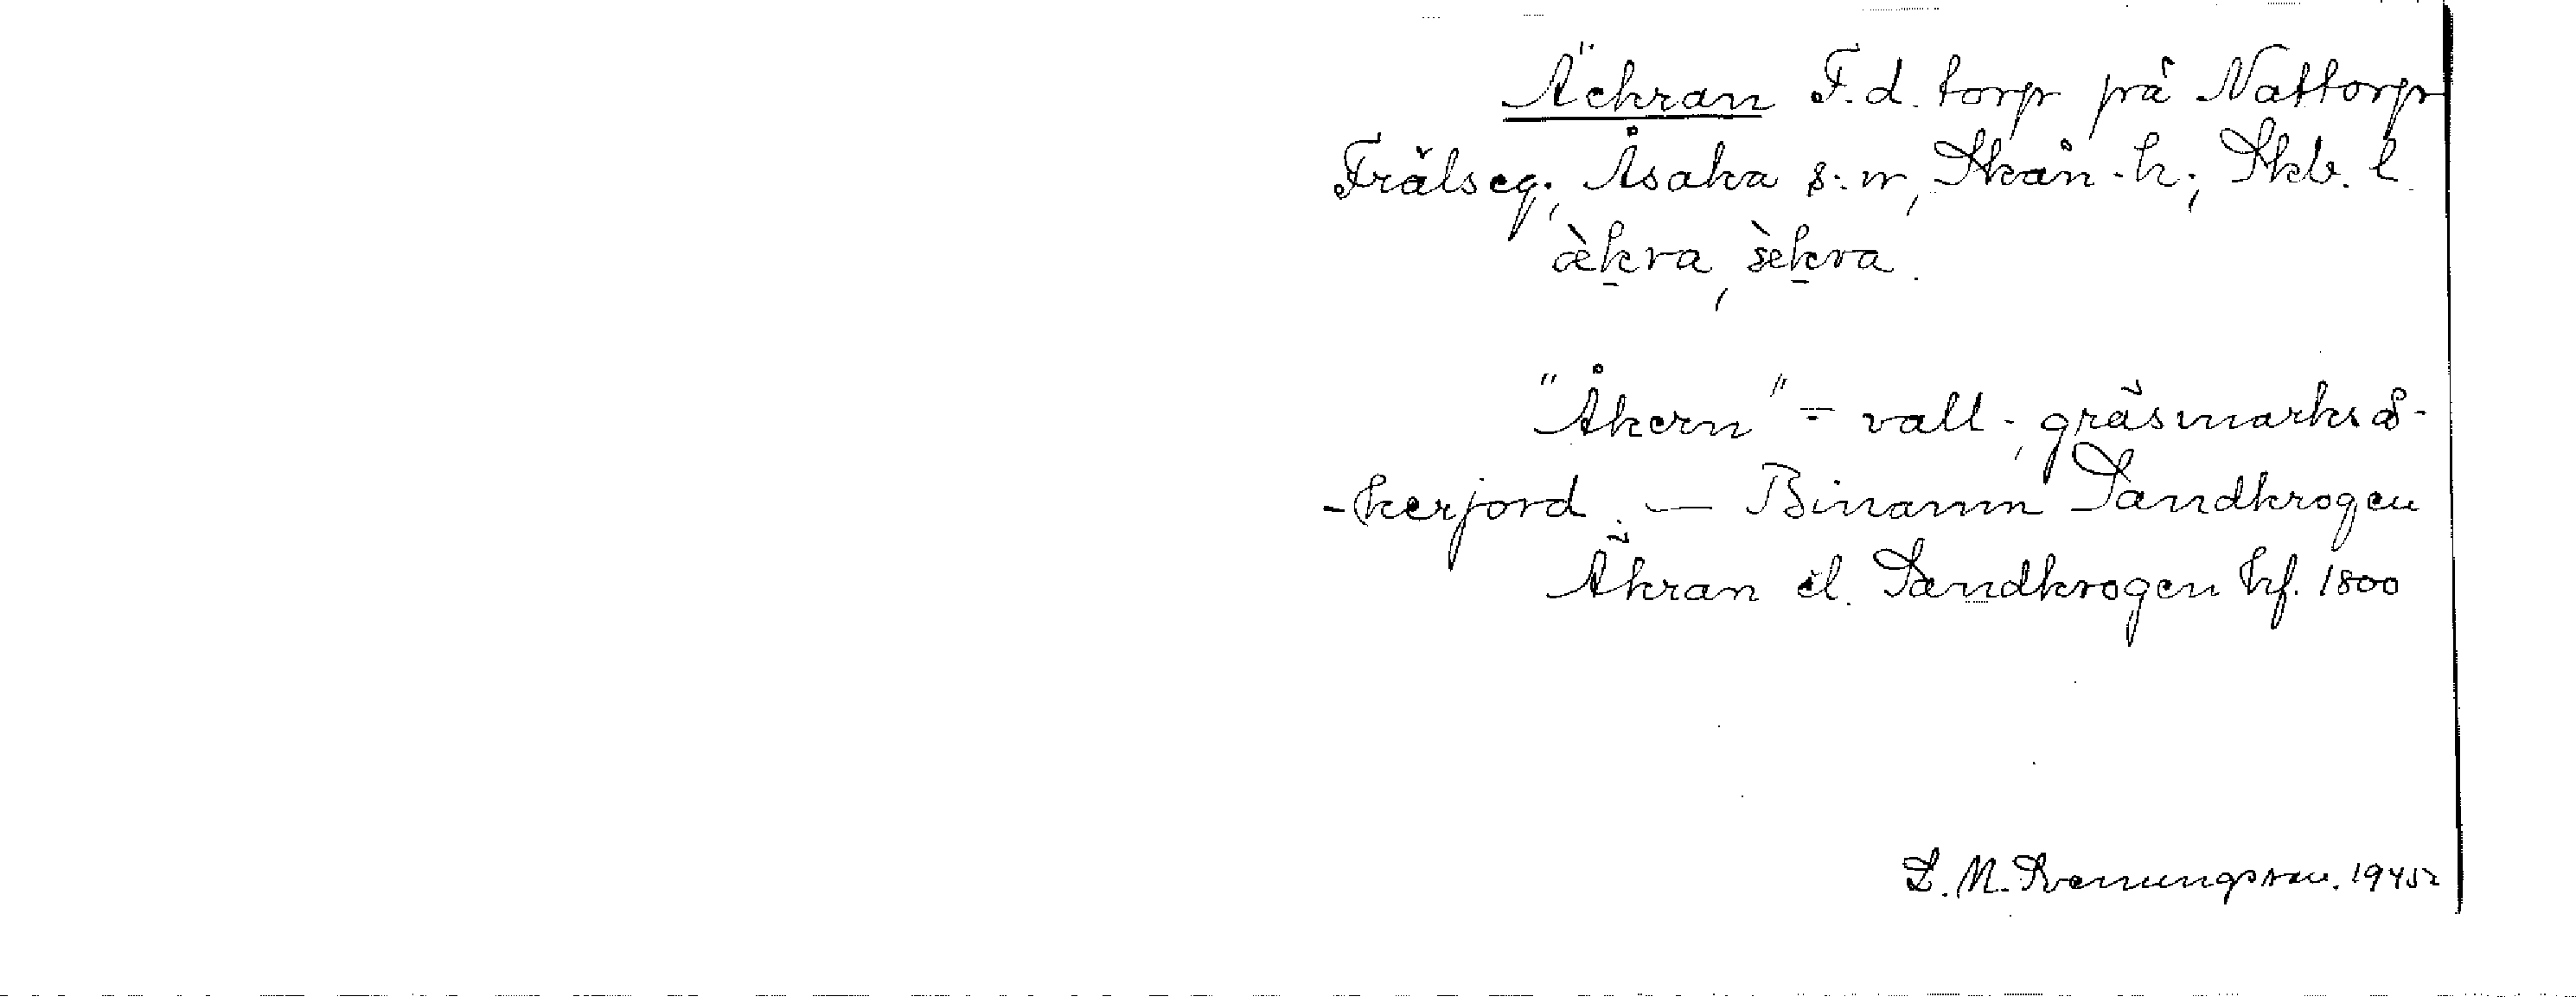 Äckran F.d. torp på Nattorp
Frälseg., Åsaka s:n, Skån. h., Skb. l.
ækra, šekra.
"Åkern" = vall-, gräsmarkså-
-kerjord. — Binamn Sandkrogen
Äkran el. Sandkrogen hf. 1800
S. M. Svenungsson. 1945